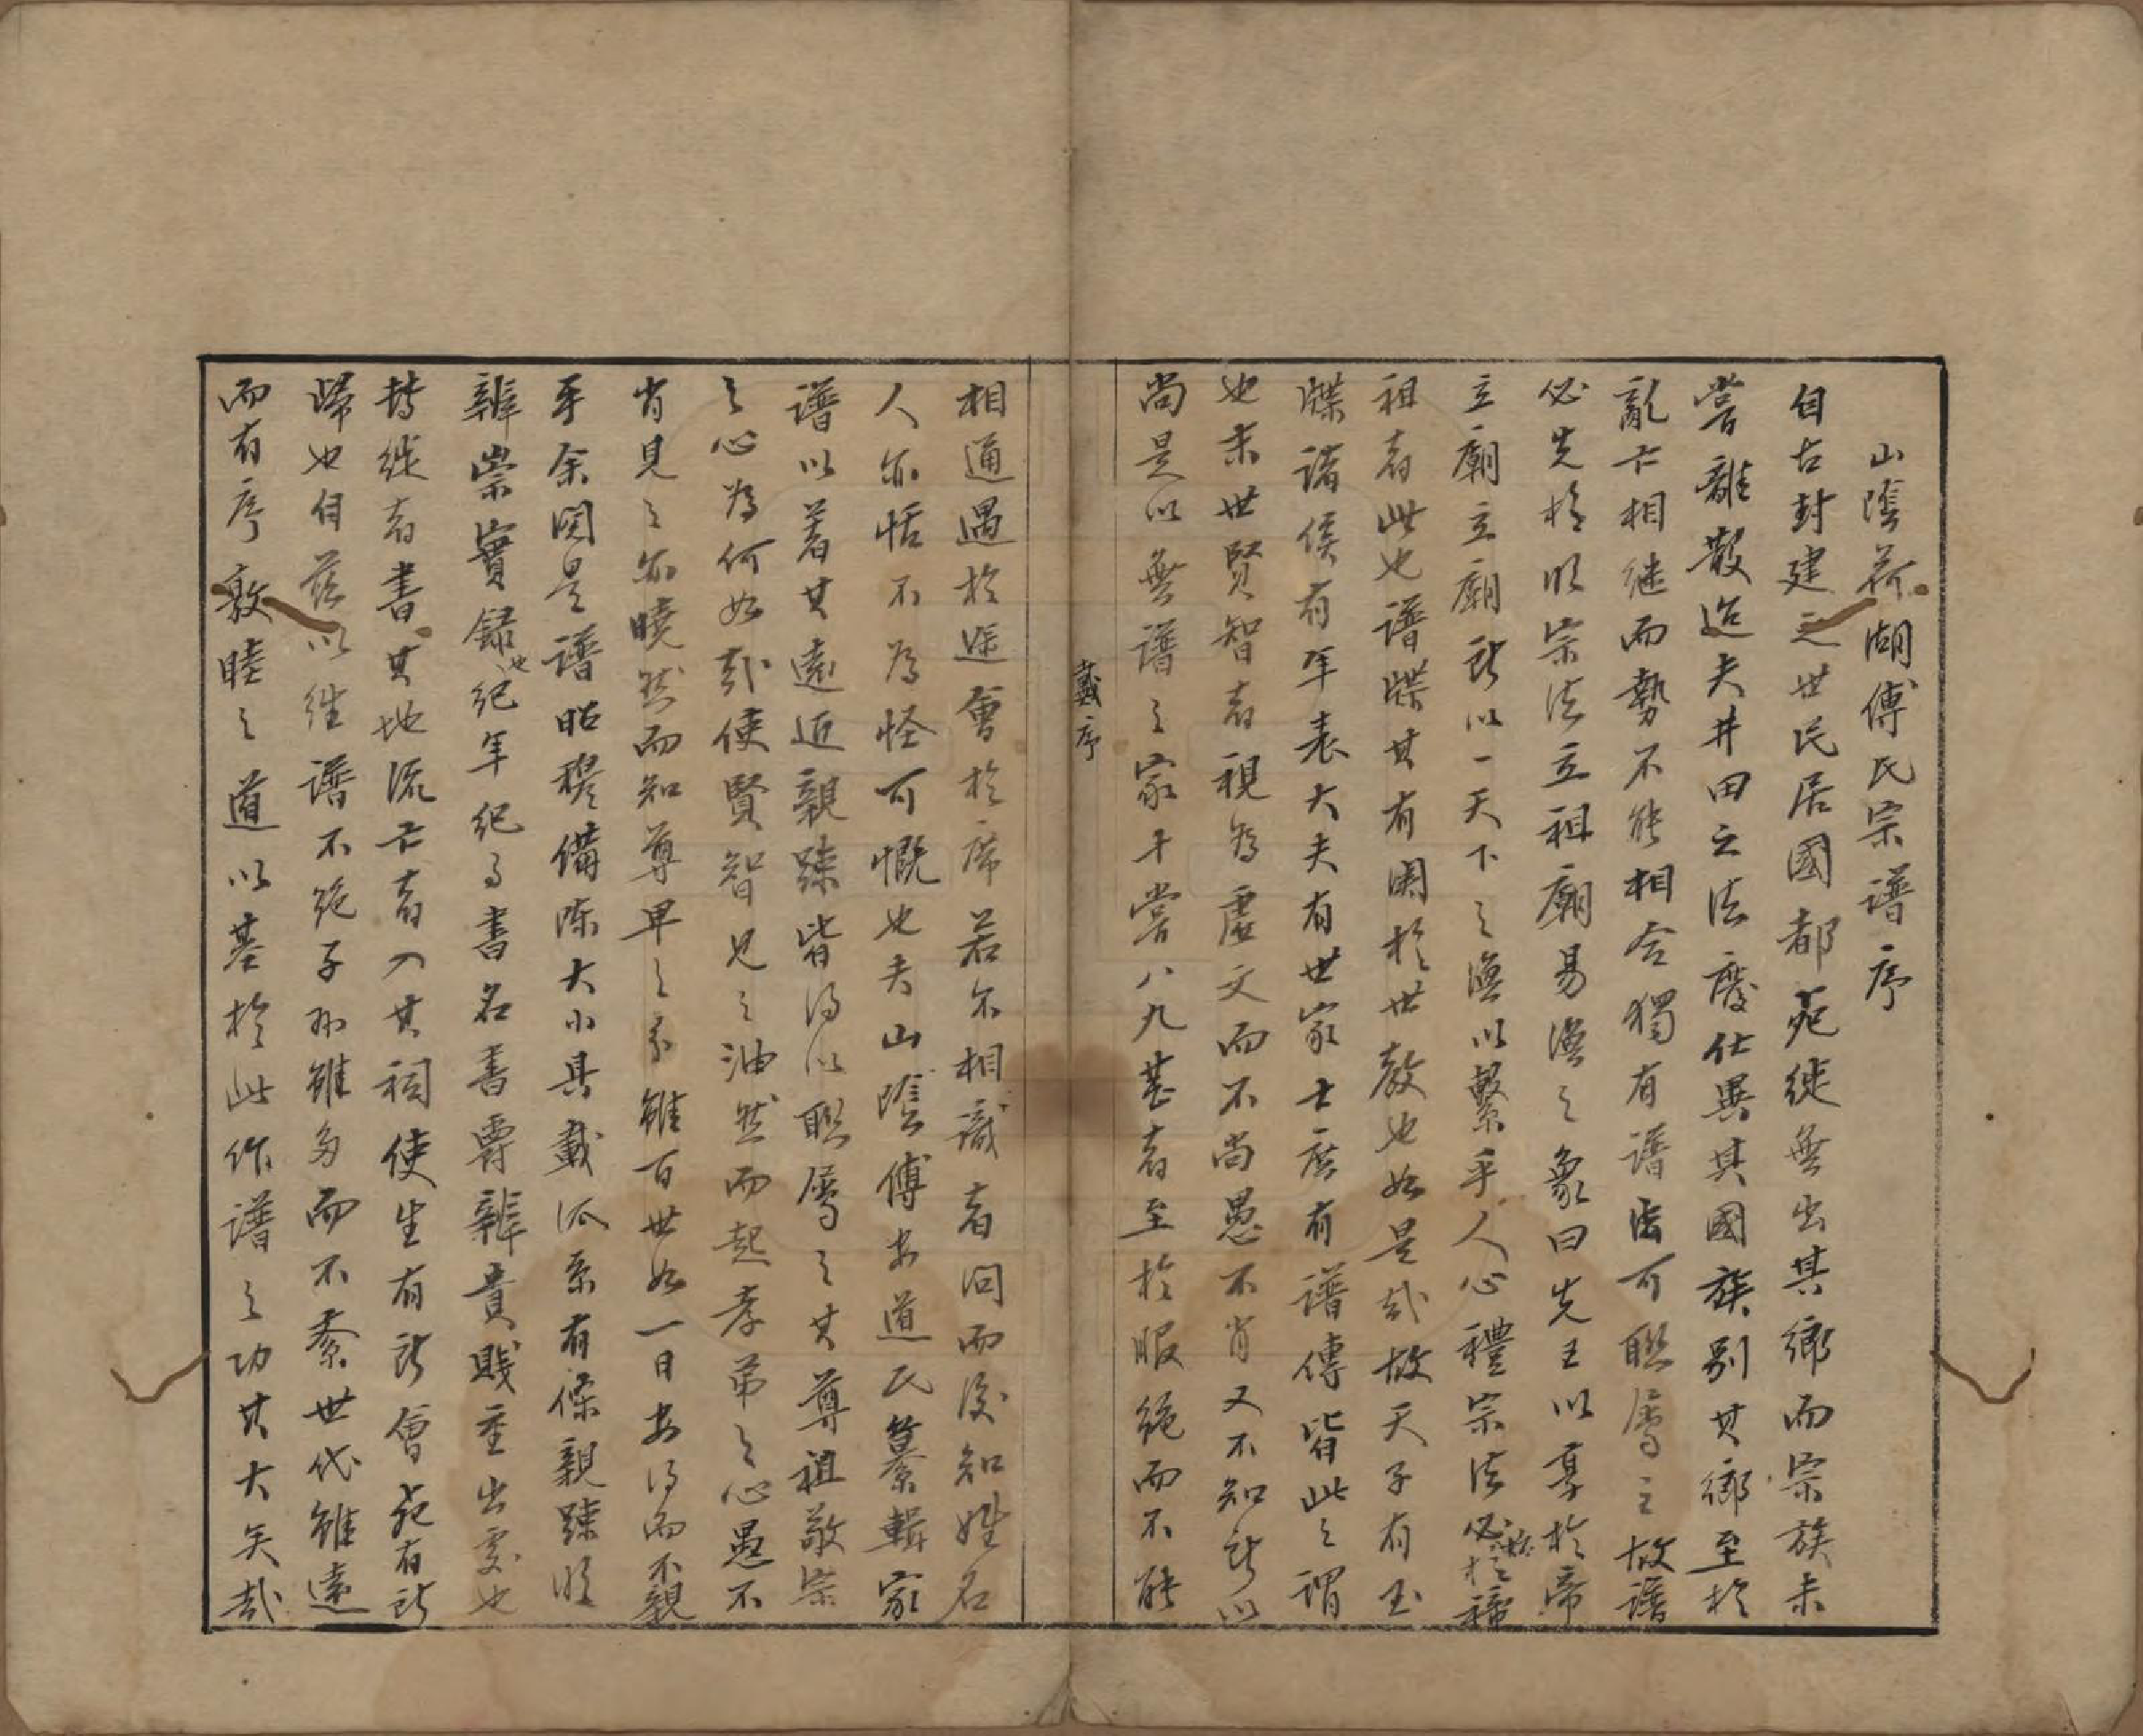 山陰荷湖傅氏宗譜序
自古封建之世民居國都死徙無出其鄉而宗族未
嘗離散迨夫井田之法廢仕異其國族别其鄉至於
亂亡相継而勢不能相合獨有譜法可聯屬之故譜
必先於明宗法立祖廟易渙之象曰先王以享於帝
立廟立廟所以一天下之渙以繫乎人心禮宗法必始於禘
祖者此也譜牒其有関於世教也如是哉故天子有玉
牒諸侯有年表大夫有世家士庶有譜傳皆此之謂
也末世賢智者視為虛文而不尚愚不肖又不知所以
尚是以無譜之家十嘗八九甚者至於服絶而不能
戴序
相通遇於途會於席若不相識者问而後知姓名
人亦恬不為怪可慨也夫山陰傅友道氏纂輯家
譜以著其遠近親踈皆得以聯屬之其尊祖敬宗
之心為何如哉使賢智見之油然而起孝弟之心愚不
肖見之亦曉然而知尊卑之系雖百世如一日安得而不親
乎余閱是譜昭穆備陳大小具載派系有條親踈明
辨崇實録也紀年紀事書名書爵辨貴賤重出處也
轉徙者書其地流亡者入其祠使生有所會死有所
歸也自茲以徃譜不絶子孙雖多而不紊世代雖遠
而有序敦睦之道以基於此作譜之功其大矣哉